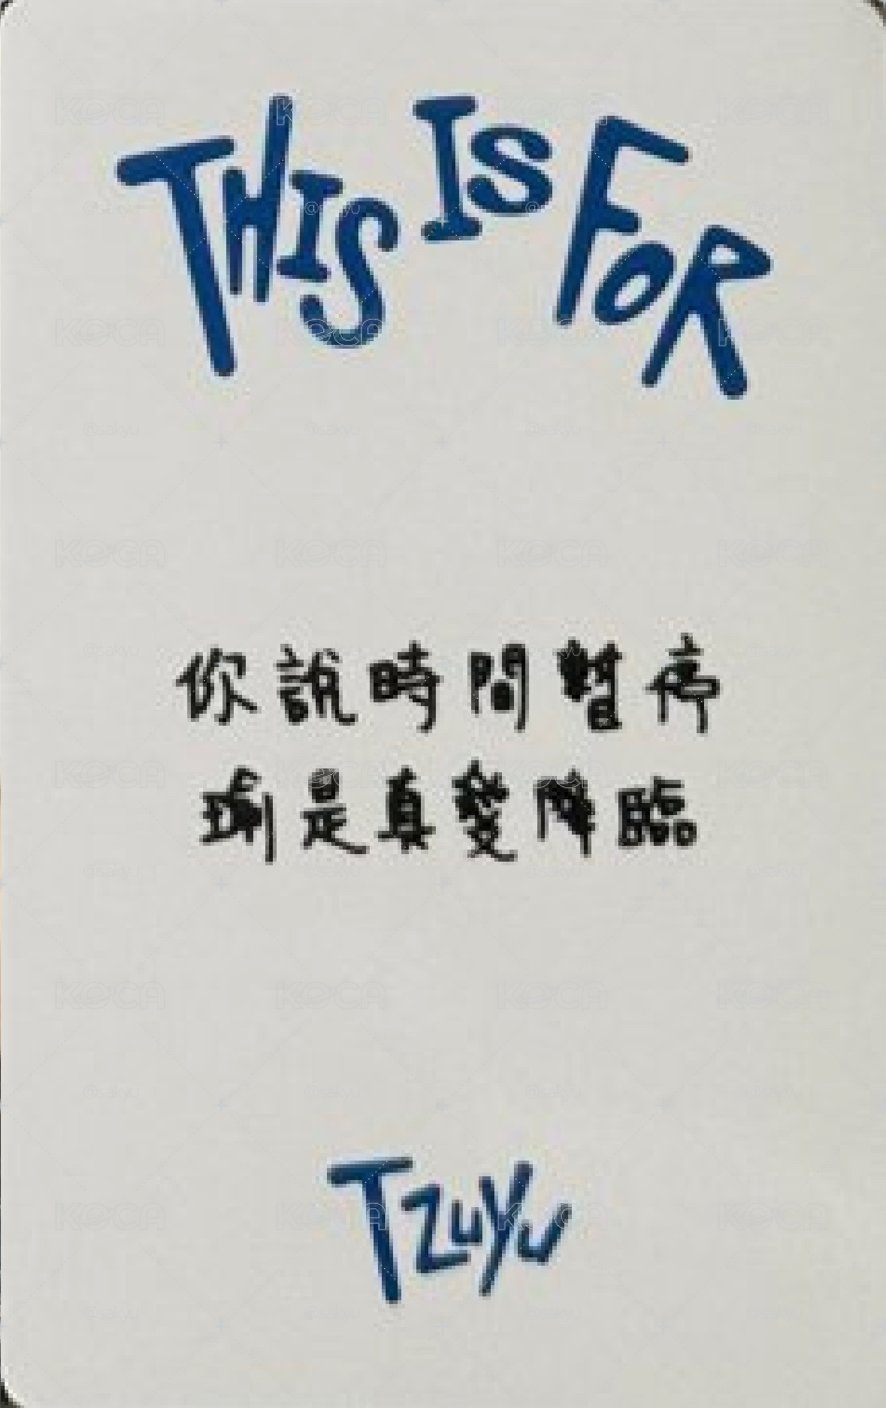 THIS IS FOR
你說時間暫停
瑜是真愛降臨
TZUYU